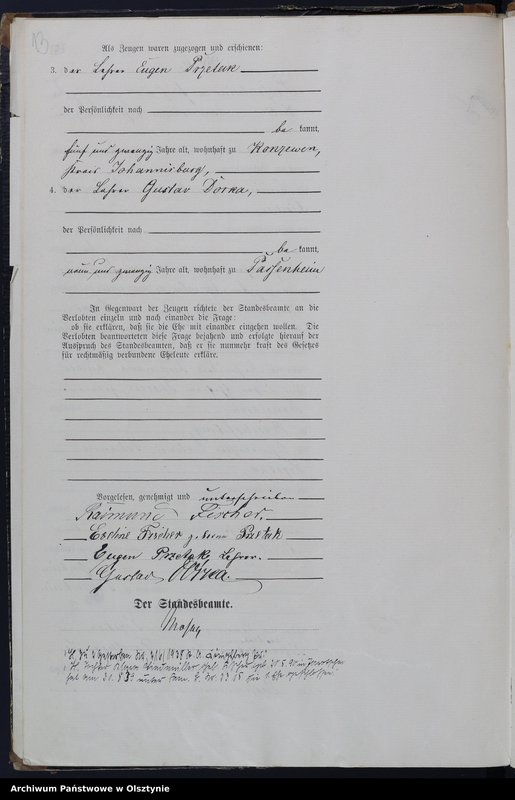 13
Als Zeugen waren zugezogen und erschienen:
3. der Lehrer Eugen Przetak
der Persönlichkeit nach
be kannt,
fünf und zwanzig Jahre alt, wohnhaft zu Konzewen,
Kreis Johannisburg,
4. der Lehrer Gustav Dorka,
der Persönlichkeit nach
be kannt,
neun und zwanzig Jahre alt, wohnhaft zu Passenheim
In Gegenwart der Zeugen richtete der Standesbeamte an die
Verlobten einzeln und nach einander die Frage:
ob sie erklären, daß sie die Ehe mit einander eingehen wollen. Die
Verlobten beantworteten diese Frage bejahend und erfolgte hierauf der
Ausspruch des Standesbeamten, daß er sie nunmehr kraft des Gesetzes
für rechtmäßig verbundene Eheleute erkläre.
Vorgelesen, genehmigt und unterschrieben
Raimund Fischer.
Fischer geborene Przetak
Eugen Przetak, Lehrer.
Gustav Dorka.
Der Standesbeamte.
Archiwum Państwowe w Olsztynie